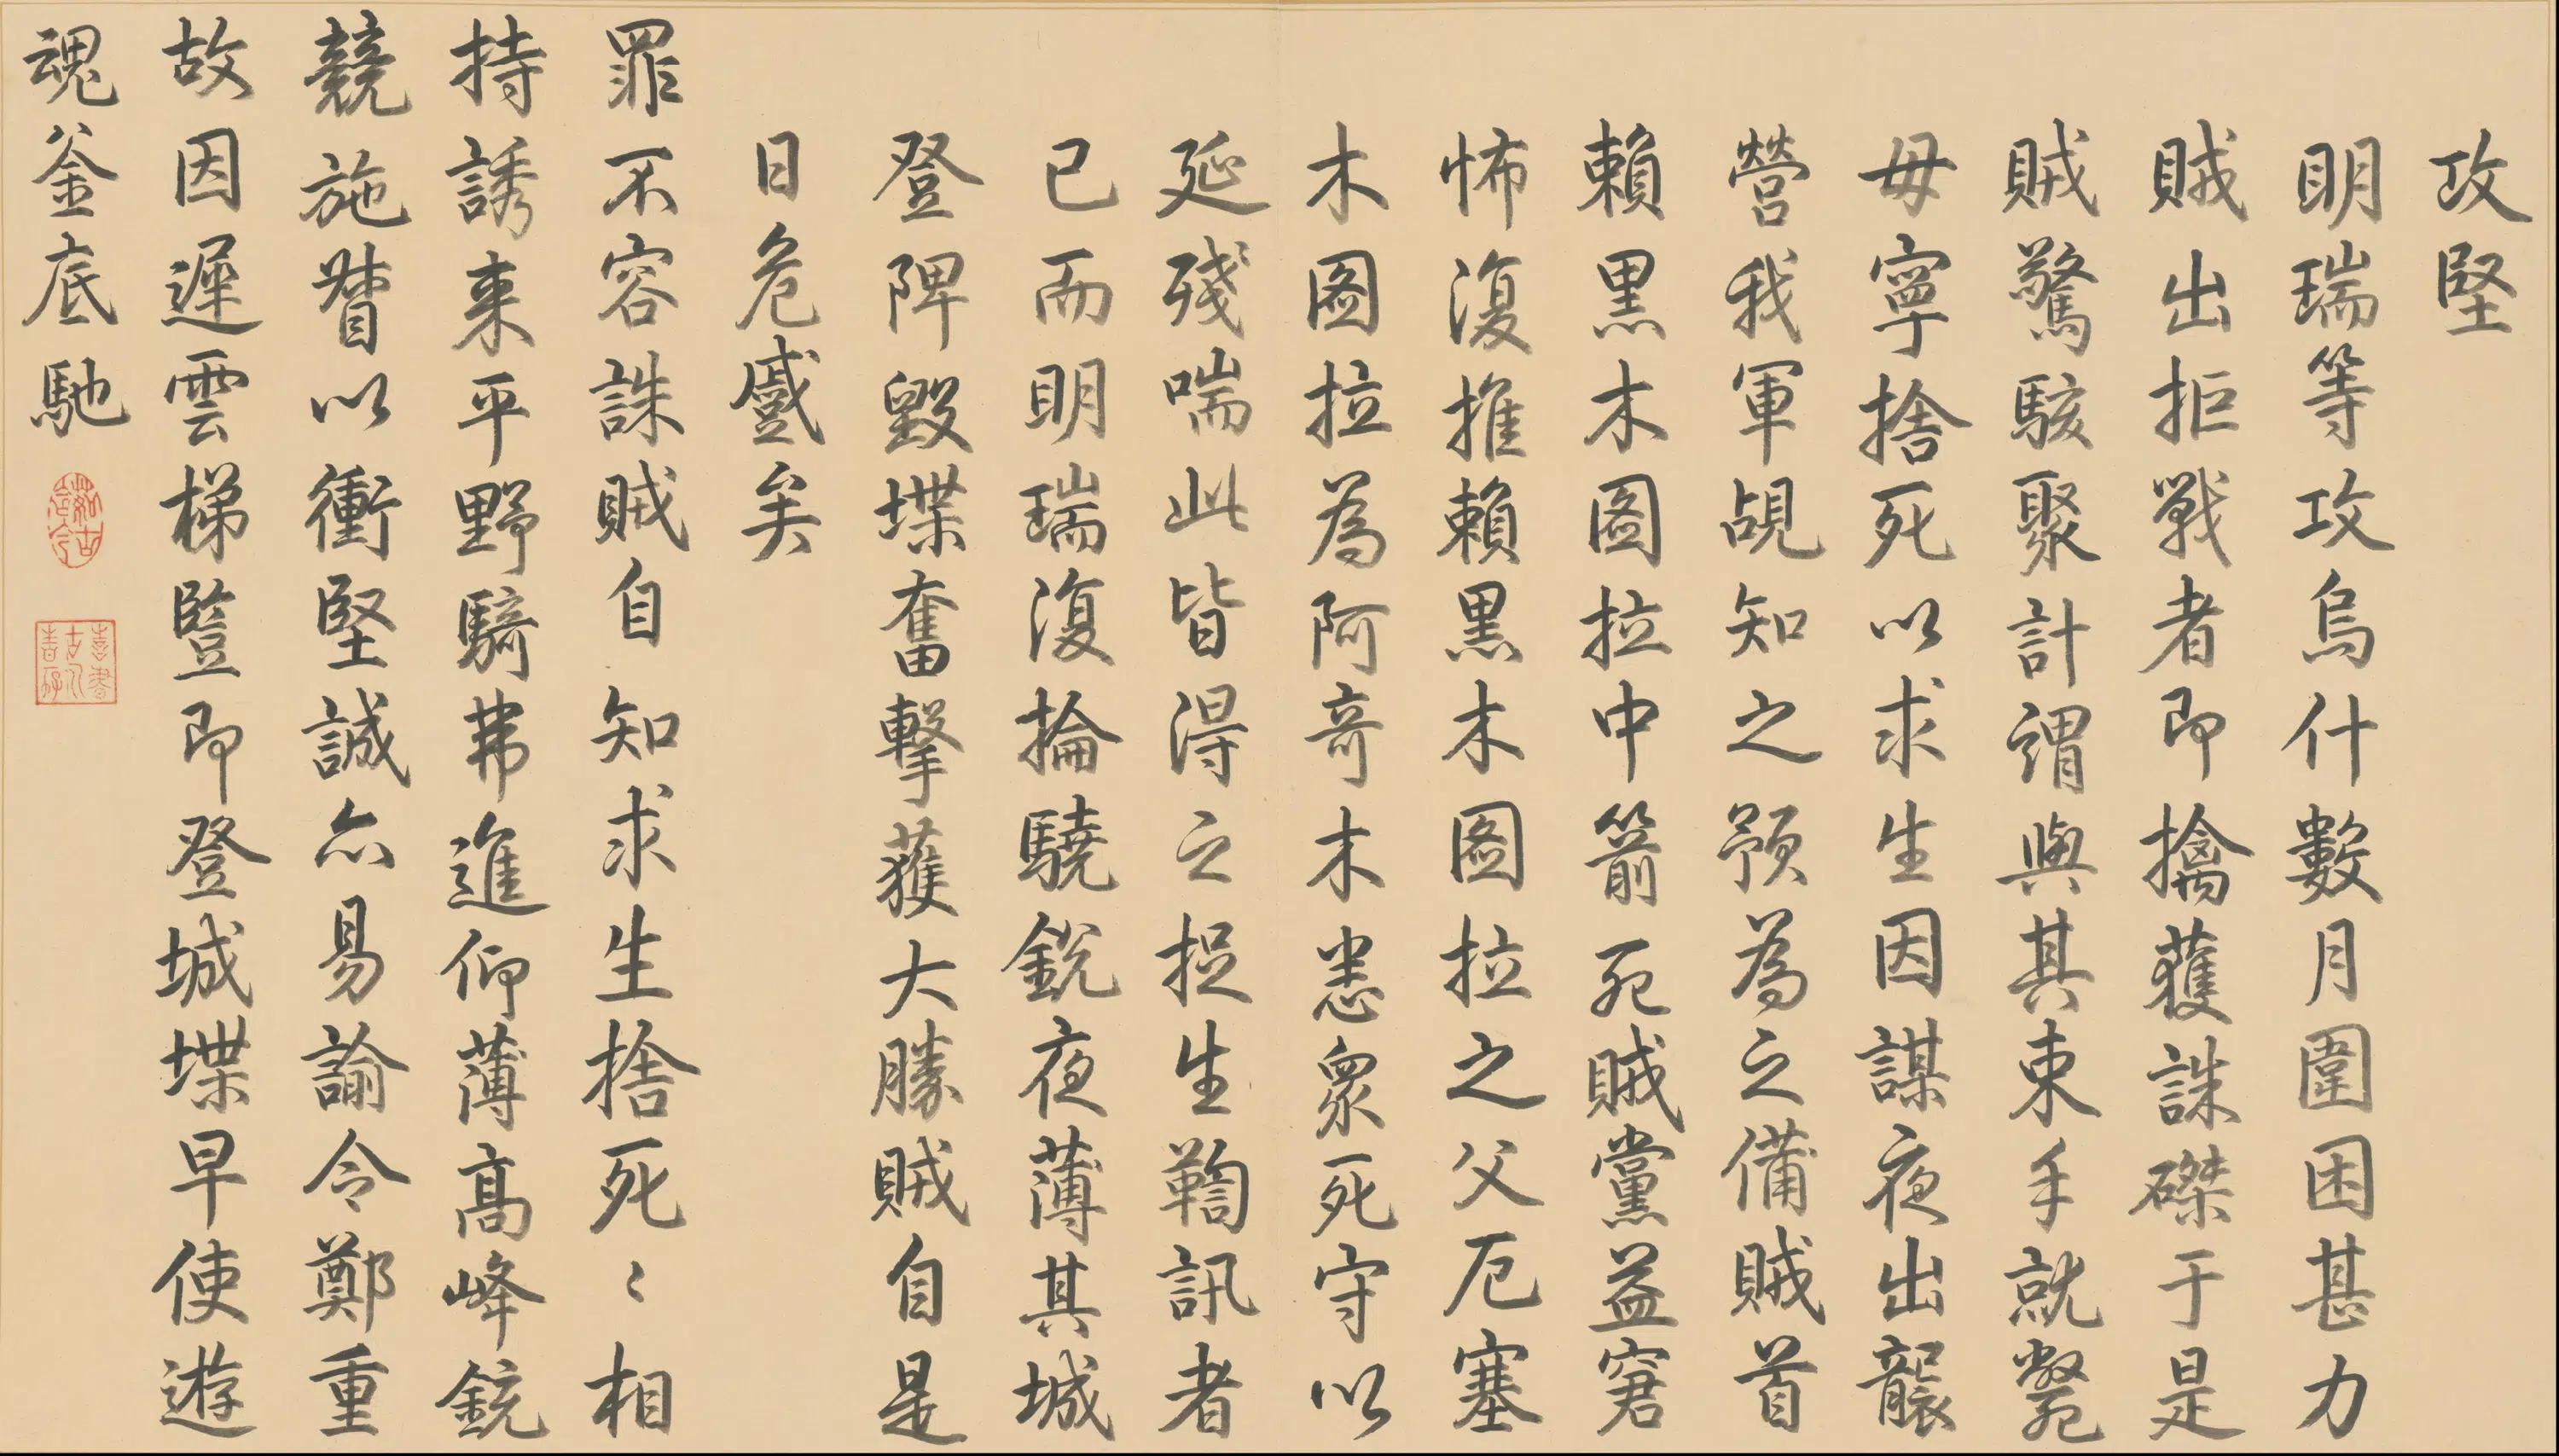 攻堅
明瑞等攻烏什數月圍困甚力
賊出拒戰者即擒獲誅磔于是
賊驚駭聚計謂與其束手就斃
毋寧捨死以求生因謀夜出襲
營我軍覘知之預為之備賊首
賴黒木圖拉中箭死賊黨益窘
怖復推賴黒木圖拉之父厄塞
木圖拉為阿竒木恚眾死守以
延殘喘此皆得之捉生鞫訊者
已而明瑞復掄驍銳夜薄其城
登陴毀堞奮擊獲大勝賊自是
日危蹙矣
罪不容誅賊自知求生捨死〻相
持誘來平野騎弗進仰薄髙峰銃
競施督以衝堅誠亦易諭令鄭重
故因遲雲梯豎即登城堞早使遊
魂釜底馳